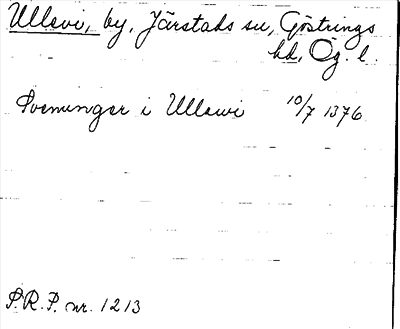 Ullevi, by, Järstads sn, Göstrings
hd, Ög. l.
Swenungær i Ullæwi 10/7 1376
S.R.P. nr. 1213